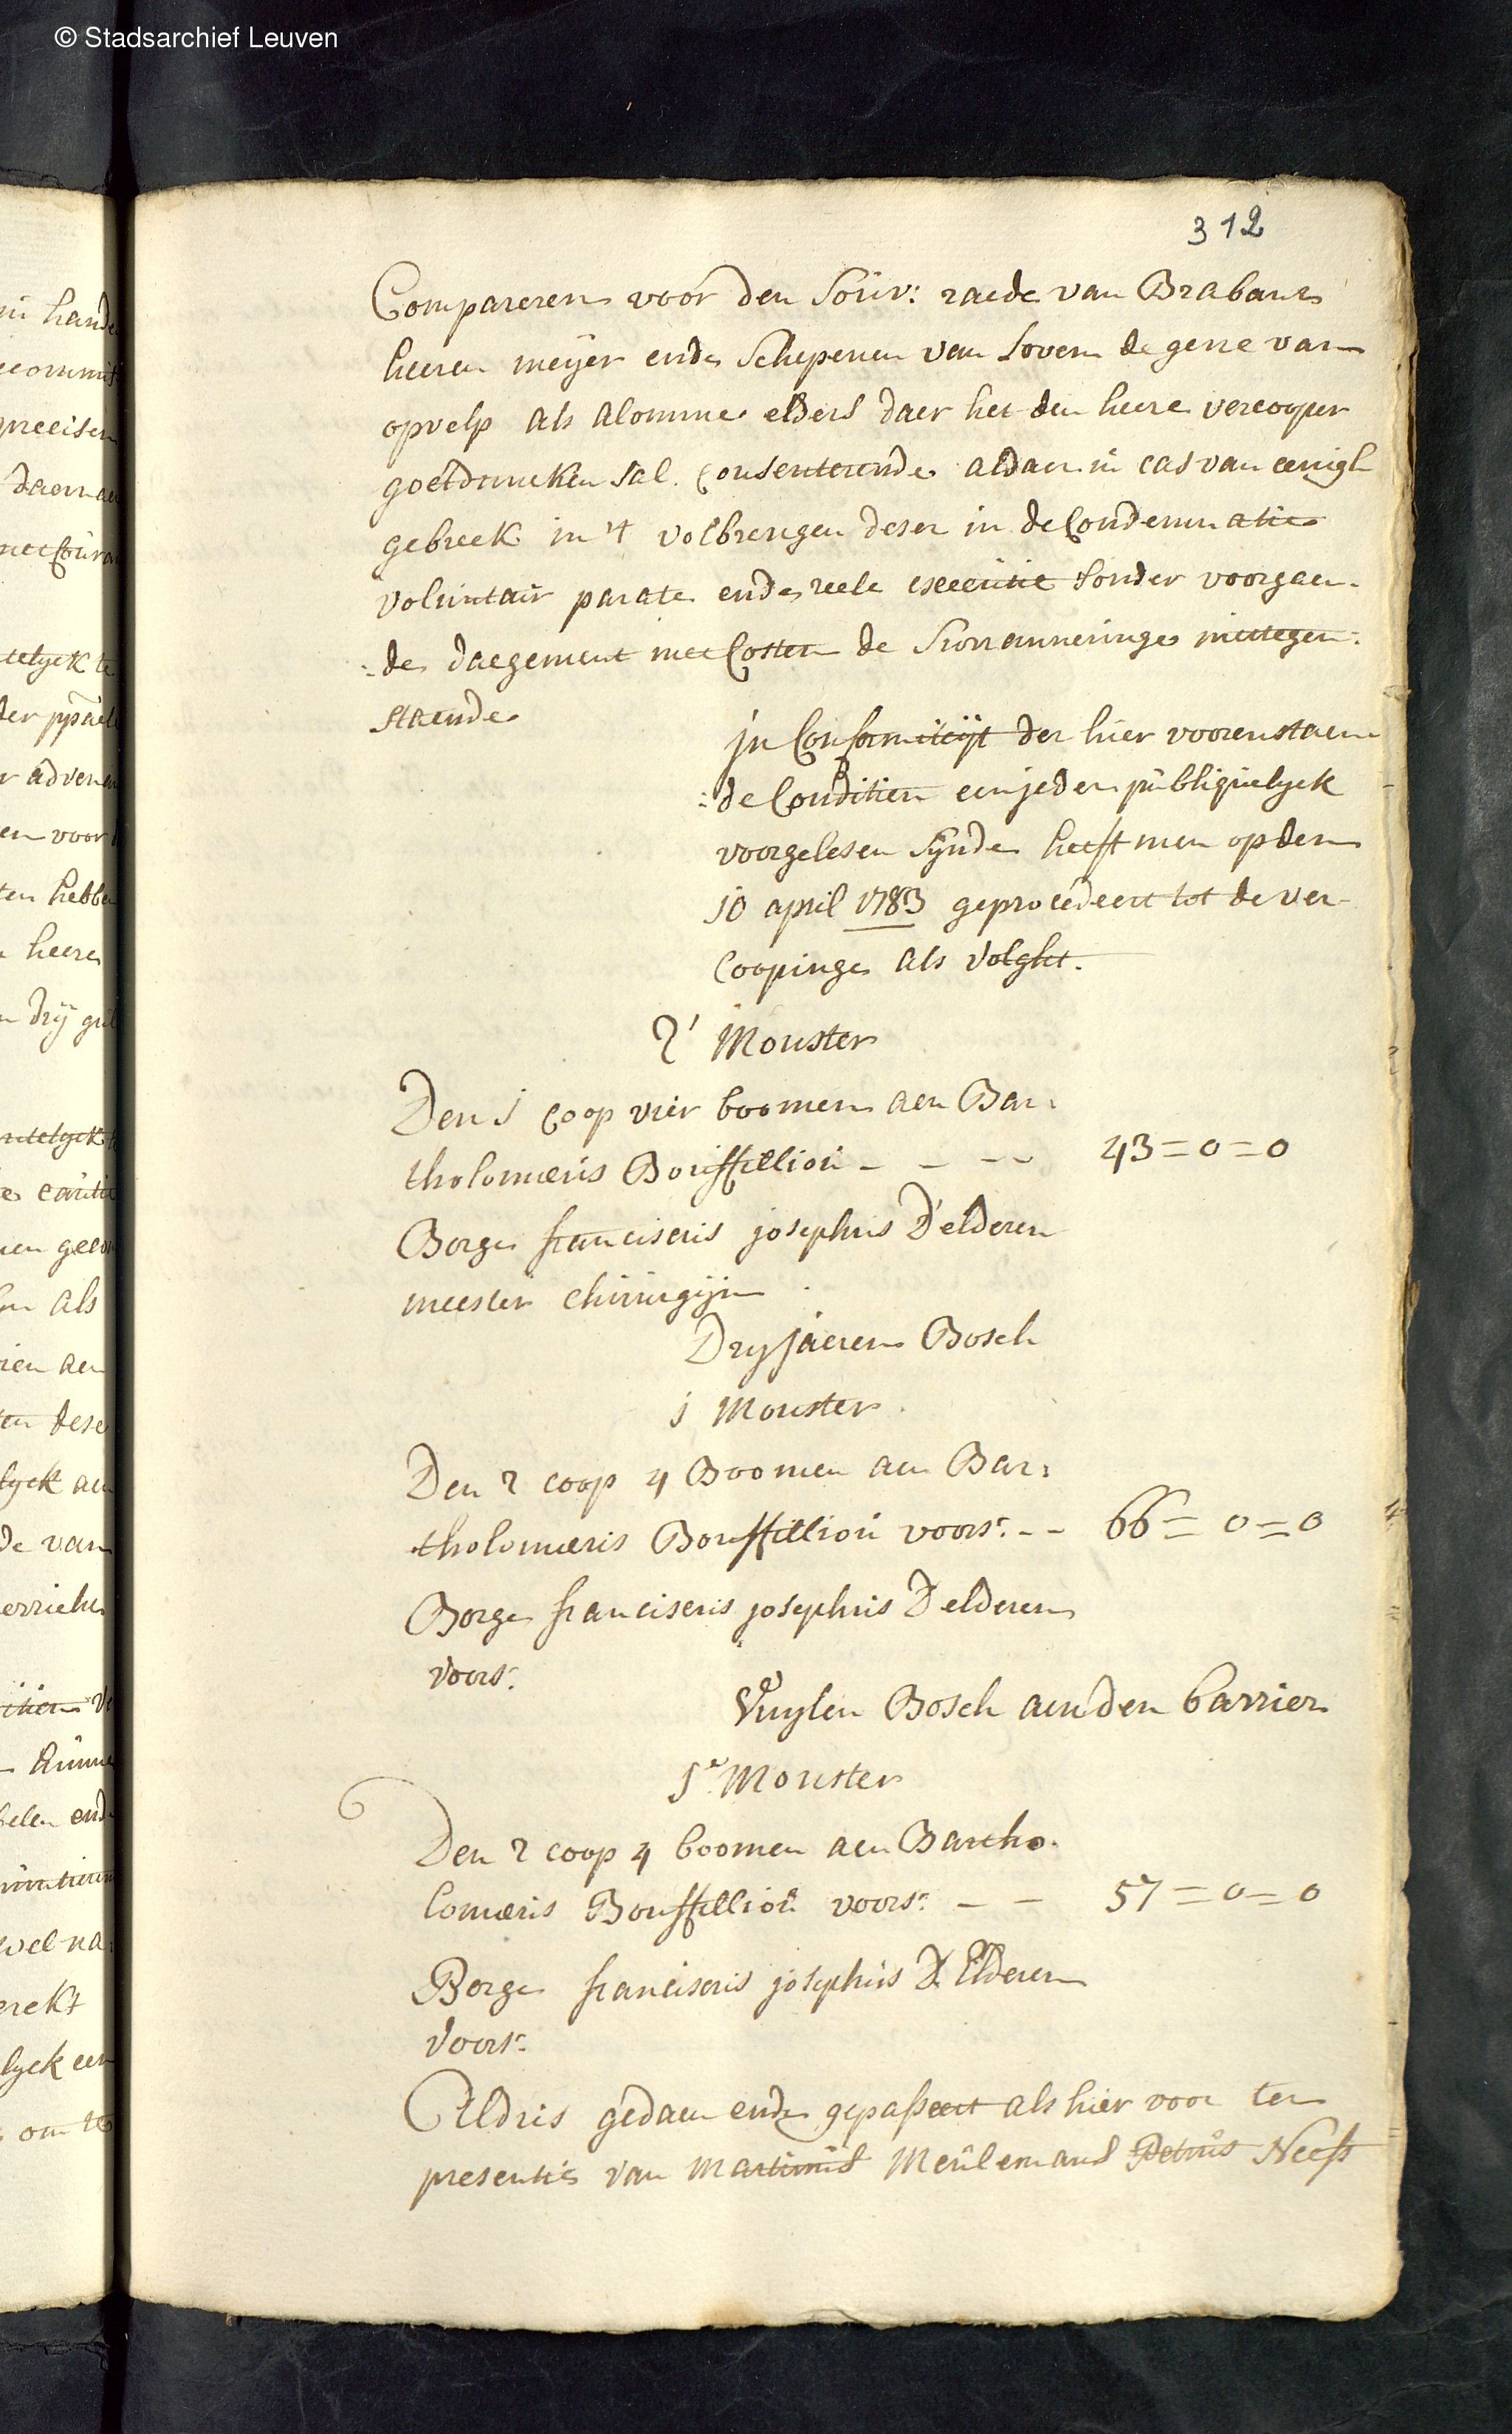 © Stadsarchief Leuven
312
Compareren voor den Souv: raede van Brabant
heeren meijer ende Schepenen van Loven de gene van
opvelp als alomme elders daer het den heere vercooper
goetduncken sal. Consenterende aldaer in cas van eenigh
gebreck in 't volbrengen deser in de Condemnatie
voluntair parate ende reele executie sonder voorgaen-
:de daegement met Costen de Surannuringe niettegen:
staende
in Conformiteijt der hier voorenstaen
:de Conditien een jeder publiquelyck
voorgelesen sijnde heeft men op den
10 april 1783 geprocedeert tot de ver-
coopinge als volght.
2' Monster
Den 1 coop vier boomen aen Bar:
tholomeus Bouffilliou - - - - 43=0=0
Borge franciscus josephus D'elderen
meester chirurgijn
Dry jaeren Bosch
1 Monster
Den 2 coop 4 Boomen aen Bar:
tholomeus Bouffilliou voors: - - 66=0=0
Borge franciscus josephus D elderen
voors:
Vuylen Bosch aen den barrier
1e Monster
Den 2 coop 4 boomen aen Bartho.
lomeus Bouffilliou voors: - - 57=0=0
Borge franciscus josephus D Elderen
voors:
Aldus gedaen ende gepasseert als hier voor ter
presentie van Martinus Meulemans Petrus Neefs